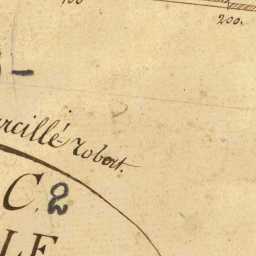 100
200.
arcillé Robert.
C. 2
LE